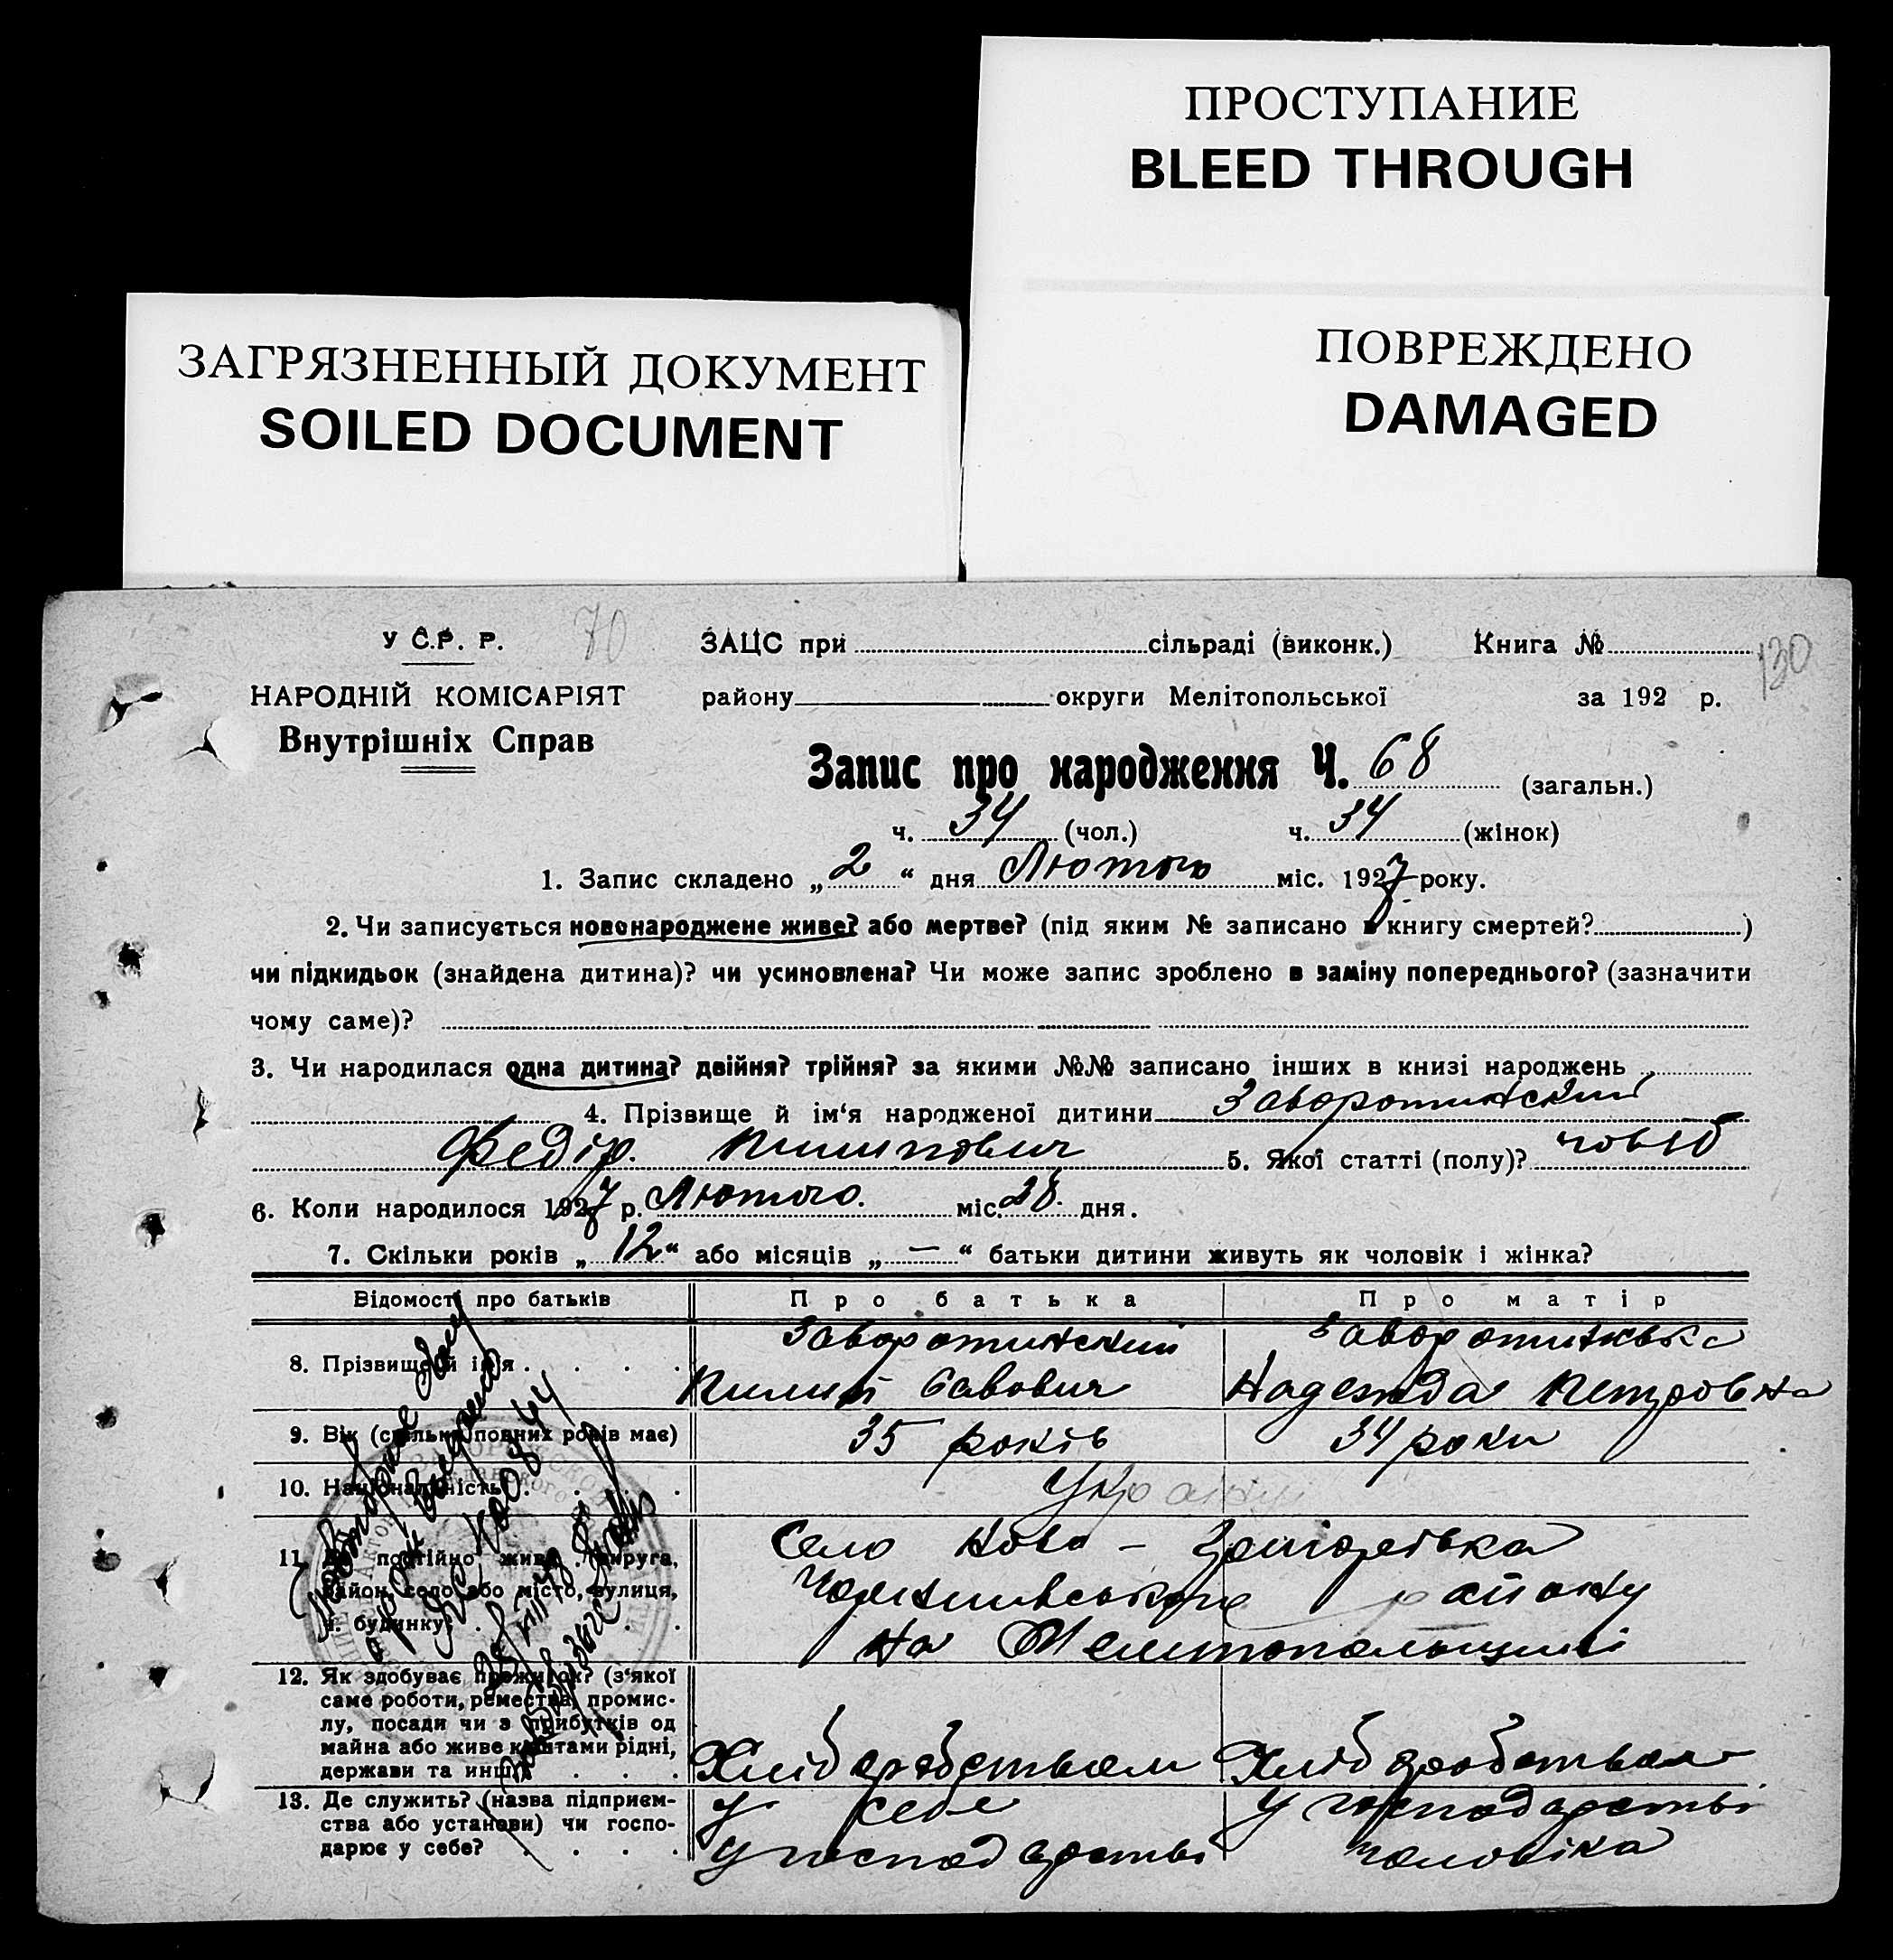 ПРОСТУПАНИЕ
BLEED THROUGH
ЗАГРЯЗНЕННЫЙ ДОКУМЕНТ
SOILED DOCUMENT
ПОВРЕЖДЕНО
DAMAGED
У С.Р. Р. 70 ЗАЦС при сільраді (виконк.) Книга № 130
НАРОДНІЙ КОМІСАРІЯТ району округи Мелітопольської за 192 р.
Внутрішніх Справ
Запис про народження Ч. 68 (загальн.)
ч. 34 (чол.) ч. 34 (жінок)
1. Запис складено „ 2 “ дня Лютого міс. 1927 року.
2. Чи записується новонароджене живе? або мертве? (під яким № записано в книгу смертей? )
чи підкидьок (знайдена дитина)? чи усиновлена? Чи може запис зроблено в заміну попереднього? (зазначити
чому саме)?
3. Чи народилася одна дитина? двійня? трійня? за якими №№ записано інших в книзі народжень
4. Прізвище й ім‘я народженої дитини Заворотинский
Федір. Пилипович 5. Якої статті (полу)?
6. Коли народилося 1927 р. Лютого. міс. 28. дня.
7. Скільки років „ 12 “ або місяців „ — “ батьки дитини живуть як чоловік і жінка?
Відомості про батьків Про батька Про матір
Заворотинский
8. Прізвище й ім'я
Пилип Савович Надежда Петровна
9. Вік (скільки повних років має) 35 років 34 роки
10. Національність
11. Де постійно живе (округа, Село Ново -
район, село або місто, вулиця, району
ч. будинку) на Мелитопольщині
12. Як здобуває прожиток? (з‘якої
саме роботи, ремества, промис-
лу, посади чи з прибутків од
майна або живе коштами рідні,
держави та инш.) Хліборобством Хліборобством
13. Де служить? (назва підприєм- у себе У господарстві
ства або установи) чи госпо-
дарює у себе? у господарстві чоловіка